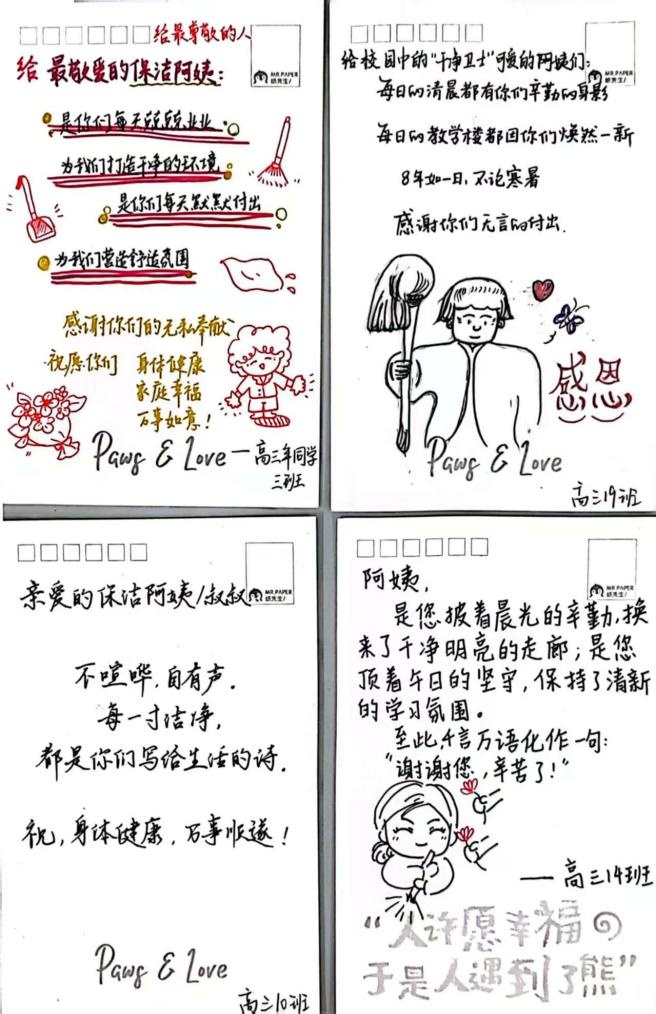 给最尊敬的人
MR.PAPER
纸先生/
给 最敬爱的保洁阿姨:
是你们每天兢兢业业
为我们打造干净的环境
是你们每天默默付出
为我们营造舒适氛围
感谢你们的无私奉献
祝愿你们 身体健康
家庭幸福
万事如意!
Paws & Love —高三年同学
三班
MR.PAPER
纸先生/
给校园中的“干净卫士”可爱的阿姨们:
每日的清晨都有你们辛勤的身影
每日的教学楼都因你们焕然一新
8年如一日,不论寒暑
感谢你们无言的付出.
感恩
Paws & Love
高三19班
MR.PAPER
纸先生/
亲爱的保洁阿姨/叔叔
不喧哗,自有声.
每一寸洁净,
都是你们写给生活的诗.
祝,身体健康,万事顺遂!
Paws & Love
高三10班
MR.PAPER
纸先生/
阿姨,
是您披着晨光的辛勤,换
来了干净明亮的走廊;是您
顶着午日的坚守,保持了清新
的学习氛围。
至此,千言万语化作一句:
“谢谢您,辛苦了!”
——高三14班
“人许愿幸福
于是人遇到了熊”